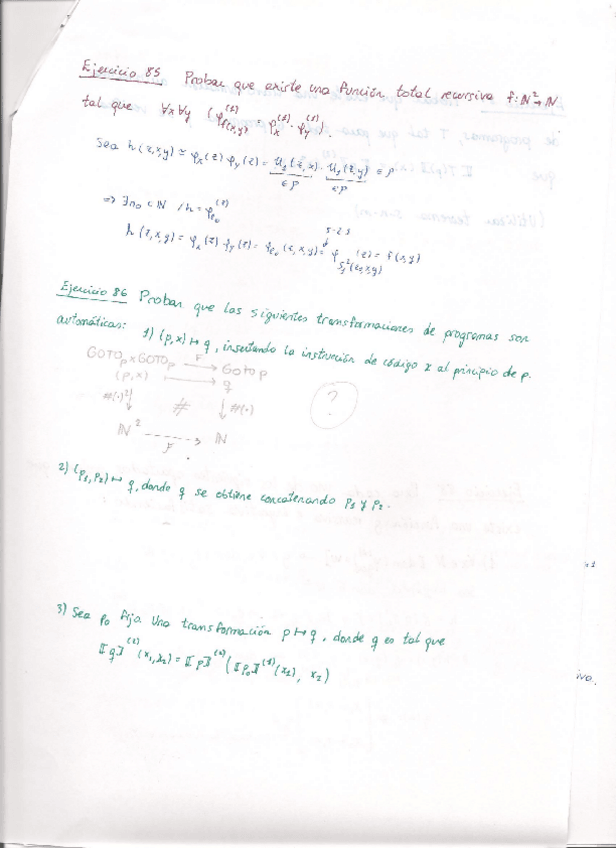 Ejercicio 85 Probar que existe una función total recursiva f: ℕ²→ℕ
tal que ∀x∀y (φ_{f(x,y)}^{(1)} = φ_x^{(1)} · φ_y^{(1)}).
Sea h(z,x,y) ≃ φ_x(z) φ_y(z) = U_1(z,x) · U_1(z,y) ∈ P
∈P ∈P
⇒ ∃ n_0 ∈ ℕ / h = φ_{e_0}^{(3)}
s-2 3
h(z,x,y) = φ_x(z) φ_y(z) = φ_{e_0}(z,x,y) = φ_{S_1^2(e_0,x,y)}(z) = f(x,y)
Ejercicio 86 Probar que las siguientes transformaciones de programas son
automáticas: 1) (p,x) ↦ q, insertando la instrucción de código x al principio de p.
GOTO_p x GOTO_p F→ GOTO_p
(p,x) → q
#(·)²↓ # ↓#(·)
?
ℕ² ---→ ℕ
F
2) (p_1,p_2) ↦ q, donde q se obtiene concatenando p_1 y p_2.
3) Sea p_0 fija. Una transformación p ↦ q, donde q es tal que
⟦q⟧^{(2)}(x_1,x_2) = ⟦p⟧^{(2)}(⟦p_0⟧^{(1)}(x_1), x_2)